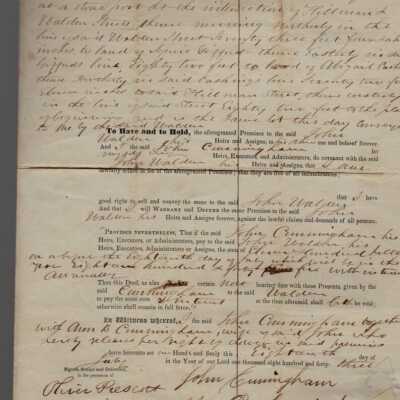 at a stone post at the intersection of Hillman &
Walden Streets thence running northerly in the
line of said Walden Street Seventy three feet four
inches to land of thence Easterly in
line, Eighty two feet to land of Abigail
thence Southerly in said line Seventy two feet
inches to said Hillman Street, thence westerly
in the line of said Street Eighty two feet to the place
of beginning and is the same lot this day conveyed
to me by the said Walden
To Have and to Hold, the aforegranted Premises to the said John
Walden his Heirs and Assigns, to his use and behoof forever.
And I the said John Cunningham for
myself & my Heirs, Executors, and Administrators, do covenant with the said
John Walden his Heirs and Assigns, that I am
lawfully seized in fee of the aforegranted Premises; that they are free of all incumbrances
that I have
good right to sell and convey the same to the said John Walden
And that I will WARRANT and DEFEND the same Premises to the said John
Walden his Heirs and Assigns forever, against the lawful claims and demands of all persons.
PROVIDED NEVERTHELESS, That if the said John Cunningham his
Heirs, Executors, or Administrators, pay to the said John Walden his
Heirs, Executors, Administrators or Assigns, the sum of three hundred dollars
on or before the eighteenth day of July which will be in the
year eighteen hundred & forty five with interest
annually
Then this Deed, as also certain note bearing date with these Presents, given by the
said Cunningham to the said Walden
to pay the same sum & interest at the time aforesaid, shall both be void;
otherwise shall remain in full force.
IN WITNESS WHEREOF, the said John Cunningham together
with Ann B Cunningham wife of said John who
hereby releases her right of dower in said premises
have hereunto set our Hands and Seals this Eighteenth day of
July in the Year of our Lord one thousand eight hundred and forty three
Signed, Sealed and Delivered,
in the presence of
Oliver Prescott
John Cuningham